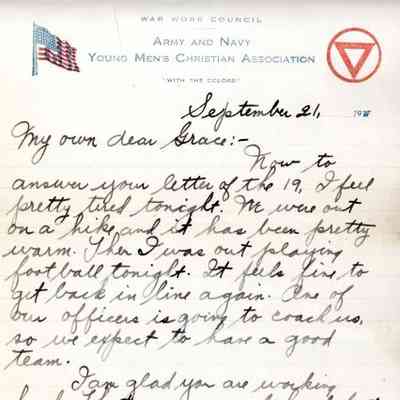 WAR WORK COUNCIL
ARMY AND NAVY
YOUNG MEN'S CHRISTIAN ASSOCIATION
"WITH THE COLORS"
September 21, 191
My own dear Grace:-
Now to
answer your letter of the 19, I feel
pretty tired tonight. We were out
on a hike and it has been pretty
warm. Then I was out playing
football tonight. It feels fine to
get back in line again. One of
our officers is going to coach us,
so we expect to have a good
team.
I am glad you are working